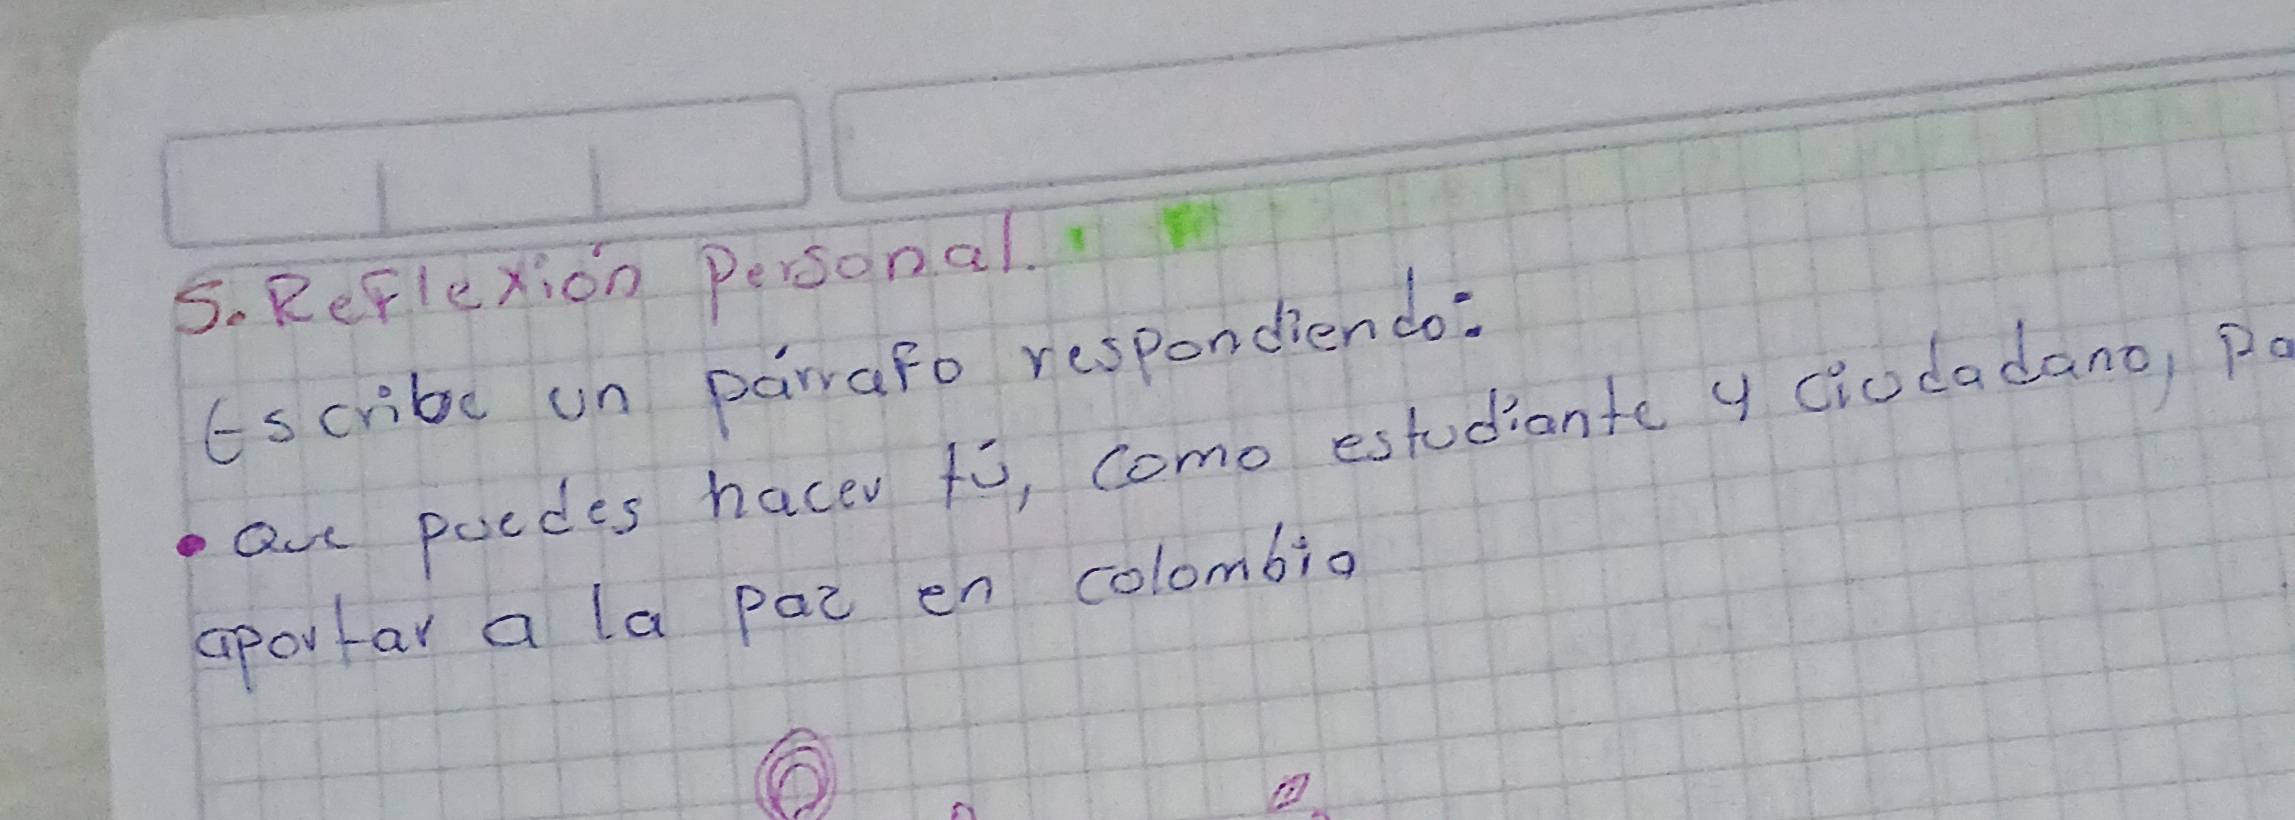 5. Reflexión Personal.
Escribe un párrafo respondiendo:
• Que puedes hacer tú, como estudiante y ciudadano, pa
aportar a la paz en colombia